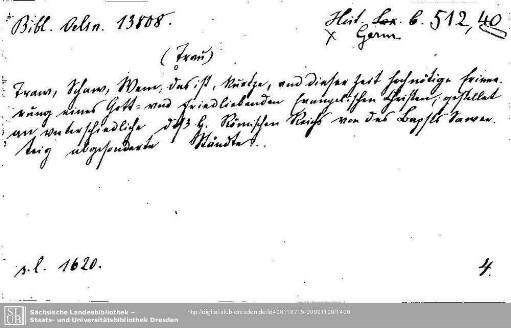 Bibl. Oelsn. 13808.
Hist. Germ. b. 512, 40
(Trau)
Traw, Schaw, Wem, das ist, Kurtze, und dieser Zeit hochnötige Erinne-
rung eines Gott- und Friedliebenden Evangelischen Christen, gestellet
an unterschiedliche deß H. Römischen Reichs von des Bapsts Sawer-
teig abgesonderte Ständte.
s. l. 1620.
4.
SLUB
Sächsische Landesbibliothek –
Staats- und Universitätsbibliothek Dresden